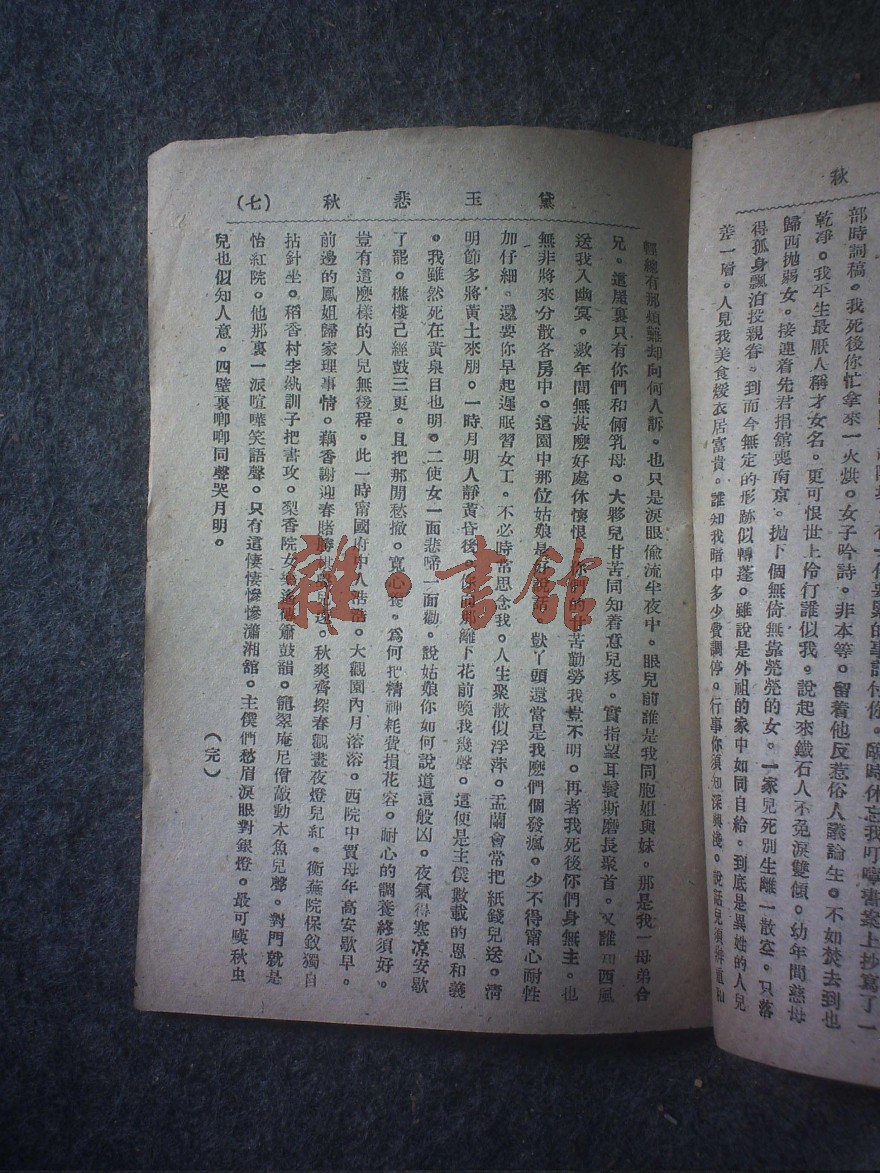 秋
部時詞稿。我死後你忙拿來一火烘。女子吟詩。非本等。留着他反惹俗人議論生。不如焚去到也
乾淨。我平生最厭人稱才女名。更可恨世上伶仃誰似我。說起來鐵石人不免淚雙傾。幼年間慈母
歸西拋弱女。接連着先君捐舘喪南京。拋下個無倚無靠煢煢的女。一家兒死別生離一散空。只落
得孤身飄泊投親眷。到而今無定的形跡似轉蓬。雖說是外祖的家中如同自給。到底是異姓的人兒
差一層。人見我美食煖衣居富貴。誰知我暗中多少費調停。行事你須知深與淺。說話兒須辨重和
黛玉悲秋 (七)
輕總有那煩難却向何人訴。也只是淚眼偷流半夜中。眼兒前誰是我同胞姐與妹。那是我一母弟合
兄。這屋裏只有你們和倆乳母。大夥兒甘苦同知着意兒疼。實指望耳鬂斯磨長聚首。又誰知西風
送我入幽冥。數年間無甚麽好處休懷恨。你們的甘苦勤勞我豈不明。再者我死後你們身無主。也
無非將來分散各房中。這園中那位姑娘是好說話。獃丫頭還當是我麽們個發瘋。少不得甯心耐性
加仔細。還要你早起遲眠習女工。不必時常思念我。人生聚散似浮萍。盂蘭會常把紙錢兒送。清
明節多將黃土來朋。一時月明人靜黃昏後。你向那籬下花前喚我幾聲。這便是主僕數載的恩和義
。我雖然死在黃泉目也明。二使女一面悲啼一面勸。說姑娘你如何說道這般凶。夜氣得寒凉安歇
了罷。樵樓已經鼓三更。且把那閒愁撤。寬心養。爲何把精神耗費損花容。耐心的調養終須好。
豈有這麽樣的人兒無後程。此一時甯國府中人浩浩。大觀園內月溶溶。西院中賈母年高安歇早。
前邊的鳳姐歸家理事情。藕香謝迎春賭勝 秋爽齊探春觀畫夜燈兒紅。衡蕪院保釵獨自
拈針坐。稻香村李紈訓子把書攻。梨香院女 簫鼓韻。籠翠庵尼僧敲動木魚兒聲。對門就是
怡紅院。他那裏一派喧嘩笑語聲。只有這悽悽慘慘瀟湘舘。主僕們愁眉淚眼對銀燈。最可嘆秋虫
兒也似知人意。四壁裏唧唧同聲哭月明。
(完)
雜·書舘